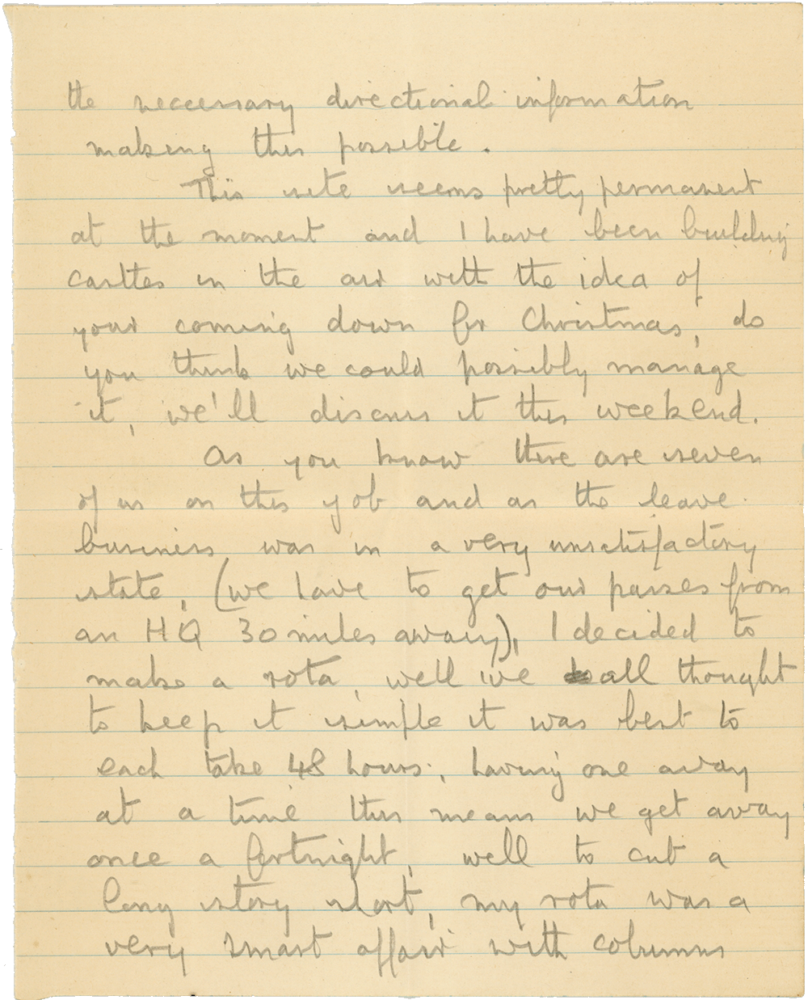 the neccessary directional information
making this possible.
This site seems pretty permanent
at the moment and I have been building
castles in the air with the idea of
your coming down for Christmas, do
you think we could possibly manage
it, we'll discuss it this weekend.
As you know there are seven
of us on this job and as the leave
business was in a very unsatisfactory
state, (we have to get our passes from
an HQ 30 miles away), I decided to
make a rota, well we all thought
to keep it simple it was best to
each take 48 hours, having one away
at a time this means we get away
once a fortnight, well to cut a
long story short, my rota was a
very smart affair with columns